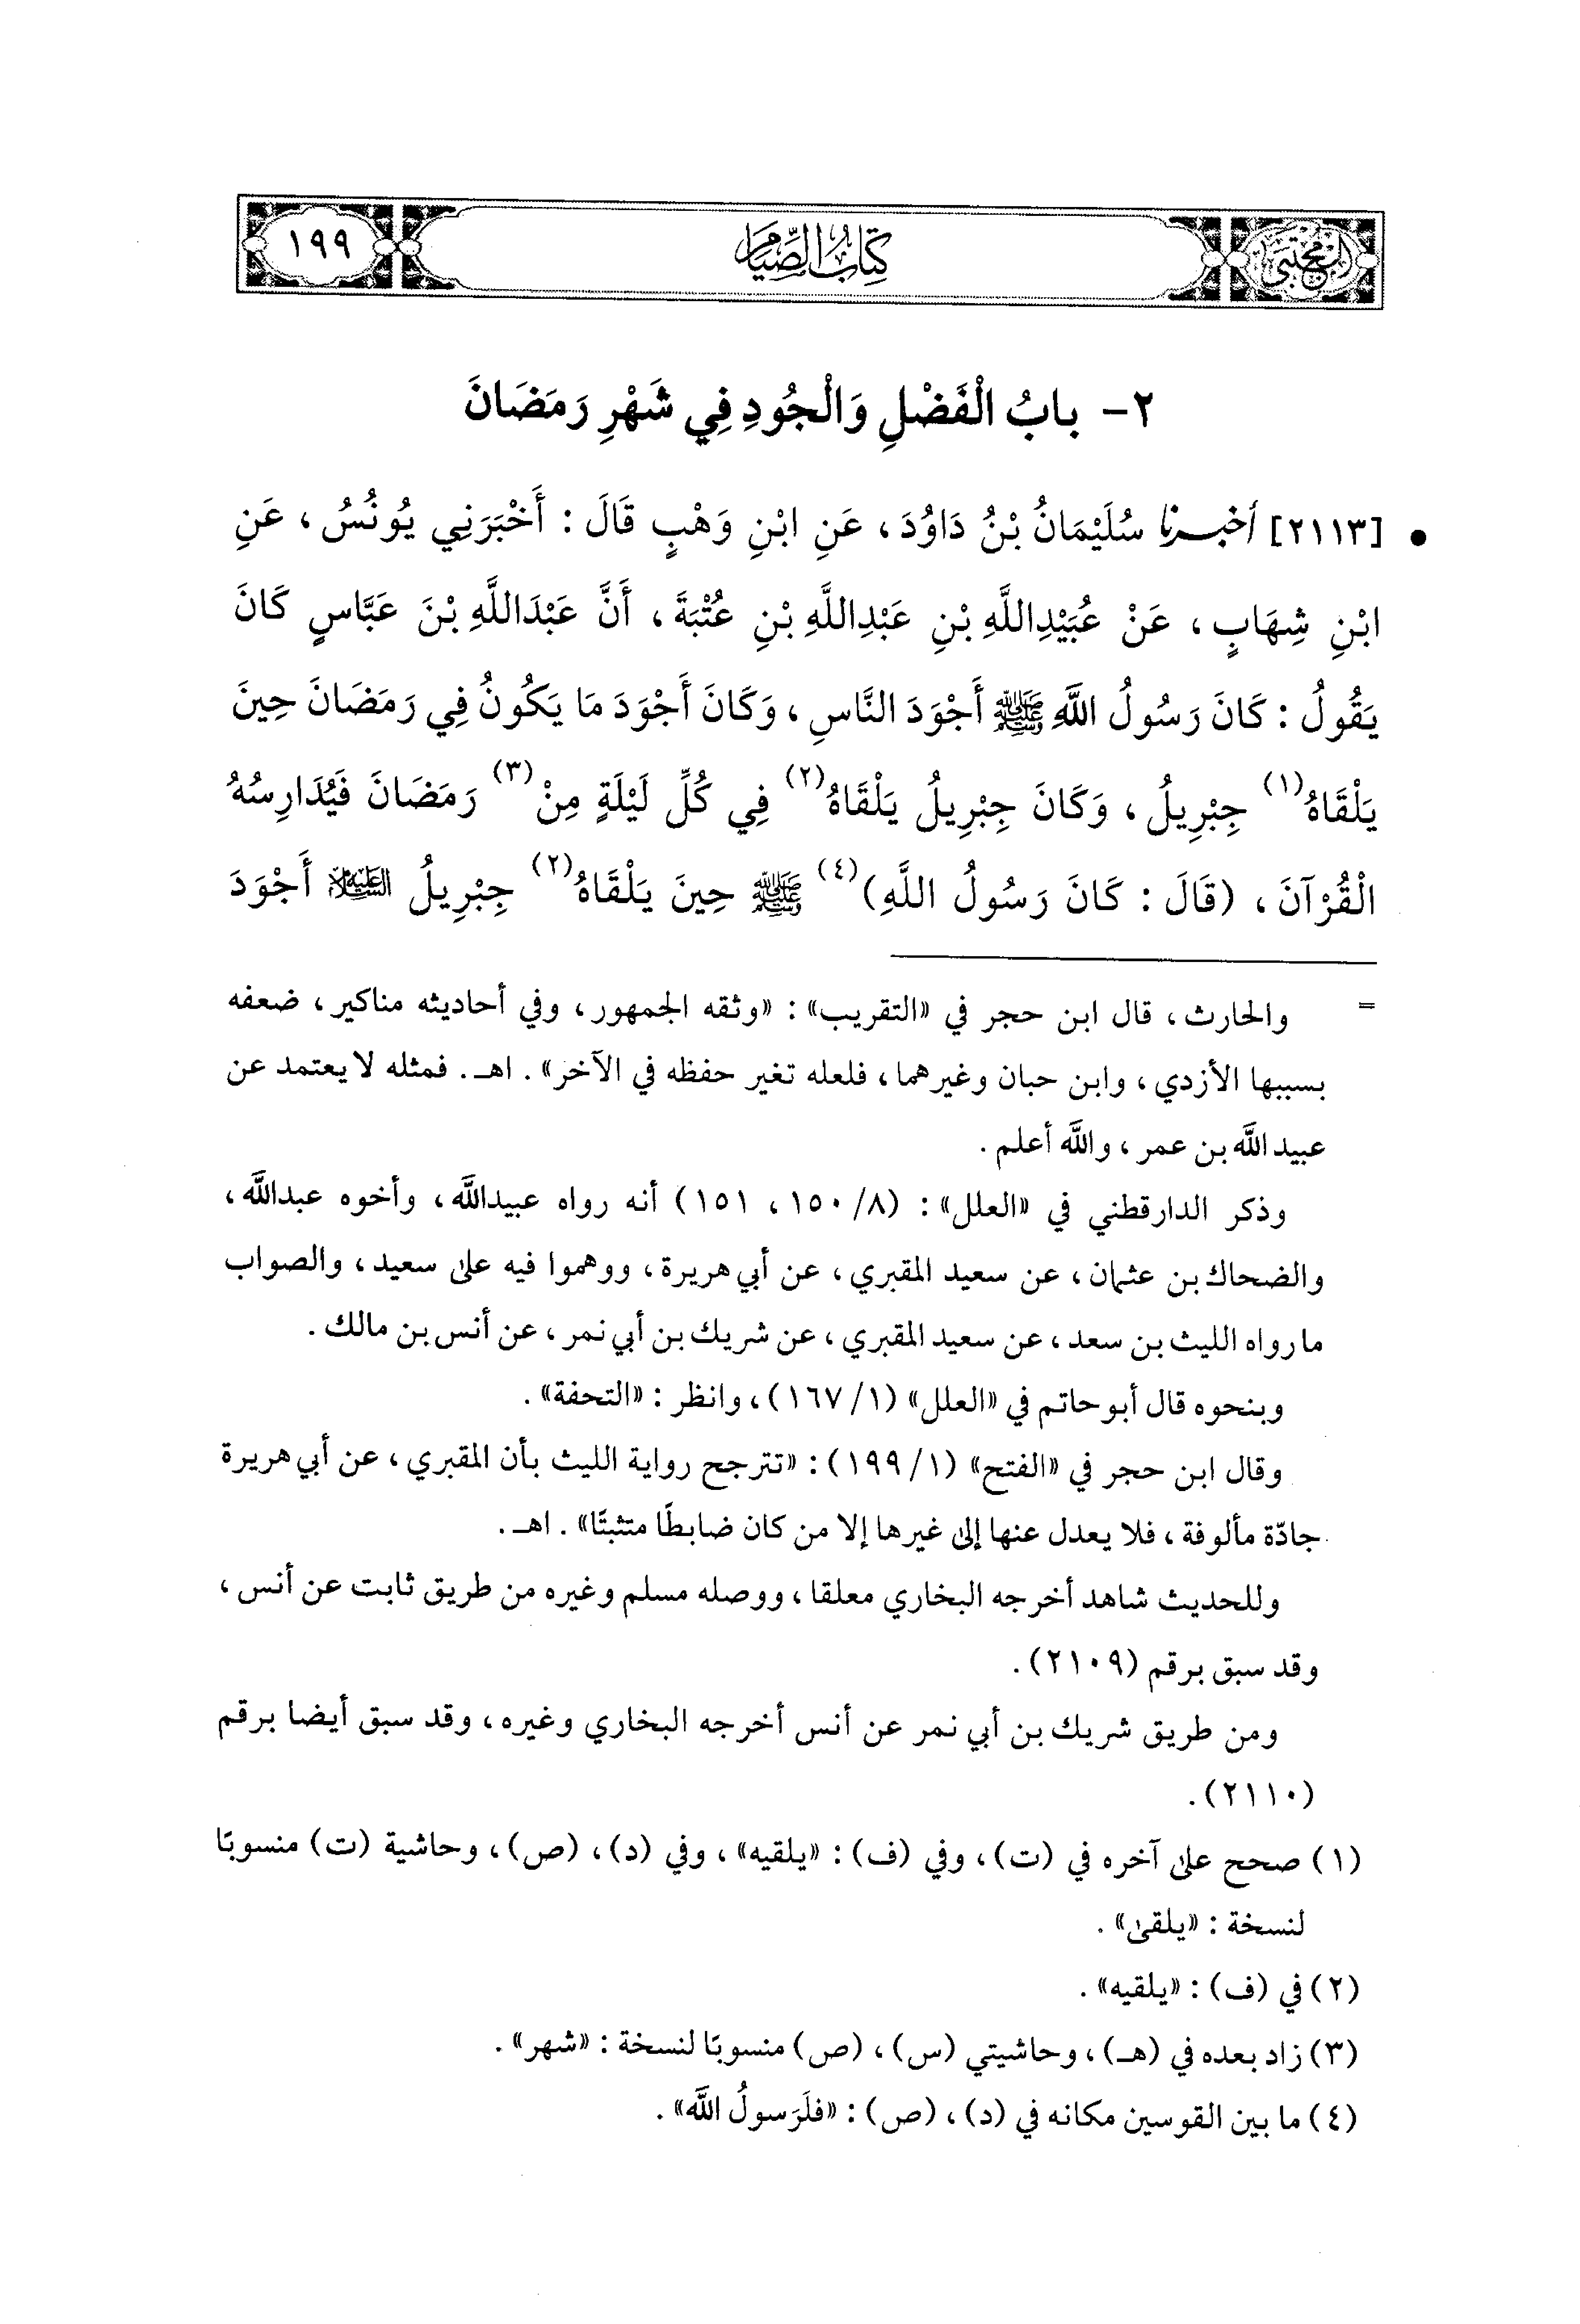 المجتبى
كتاب الصيام
١٩٩
٢- بابُ الْفَضْلِ وَالْجُودِ فِي شَهْرِ رَمَضَانَ
• [٢١١٣] أخبرنا سُلَيْمَانُ بْنُ دَاوُدَ، عَنِ ابْنِ وَهْبٍ قَالَ: أَخْبَرَنِي يُونُسُ، عَنِ
ابْنِ شِهَابٍ، عَنْ عُبَيْدِاللَّهِ بْنِ عَبْدِاللَّهِ بْنِ عُتْبَةَ، أَنَّ عَبْدَاللَّهِ بْنَ عَبَّاسٍ كَانَ
يَقُولُ: كَانَ رَسُولُ اللَّهِ ﷺ أَجْوَدَ النَّاسِ، وَكَانَ أَجْوَدَ مَا يَكُونُ فِي رَمَضَانَ حِينَ
يَلْقَاهُ(١) جِبْرِيلُ، وَكَانَ جِبْرِيلُ يَلْقَاهُ(٢) فِي كُلِّ لَيْلَةٍ مِنْ(٣) رَمَضَانَ فَيُدَارِسُهُ
الْقُرْآنَ، (قَالَ: كَانَ رَسُولُ اللَّهِ)(٤) ﷺ حِينَ يَلْقَاهُ(٢) جِبْرِيلُ عليه السلام أَجْوَدَ
= والحارث، قال ابن حجر في «التقريب»: «وثقه الجمهور، وفي أحاديثه مناكير، ضعفه
بسببها الأزدي، وابن حبان وغيرهما، فلعله تغير حفظه في الآخر». اهـ. فمثله لا يعتمد عن
عبيد اللَّه بن عمر، واللَّه أعلم.
وذكر الدارقطني في «العلل»: (٨/ ١٥٠، ١٥١) أنه رواه عبيداللَّه، وأخوه عبداللَّه،
والضحاك بن عثمان، عن سعيد المقبري، عن أبي هريرة، ووهموا فيه على سعيد، والصواب
ما رواه الليث بن سعد، عن سعيد المقبري، عن شريك بن أبي نمر، عن أنس بن مالك.
وبنحوه قال أبو حاتم في «العلل» (١/ ١٦٧)، وانظر: «التحفة».
وقال ابن حجر في «الفتح» (١/ ١٩٩): «تترجح رواية الليث بأن المقبري، عن أبي هريرة
جادّة مألوفة، فلا يعدل عنها إلى غيرها إلا من كان ضابطًا متثبتًا». اهـ.
وللحديث شاهد أخرجه البخاري معلقا، ووصله مسلم وغيره من طريق ثابت عن أنس،
وقد سبق برقم (٢١٠٩).
ومن طريق شريك بن أبي نمر عن أنس أخرجه البخاري وغيره، وقد سبق أيضا برقم
(٢١١٠).
(١) صحح على آخره في (ت)، وفي (ف): «يلقيه»، وفي (د)، (ص)، وحاشية (ت) منسوبًا
لنسخة: «يلقى».
(٢) في (ف): «يلقيه».
(٣) زاد بعده في (هـ)، وحاشيتي (س)، (ص) منسوبًا لنسخة: «شهر».
(٤) ما بين القوسين مكانه في (د)، (ص): «فلَرَسولُ اللَّه».